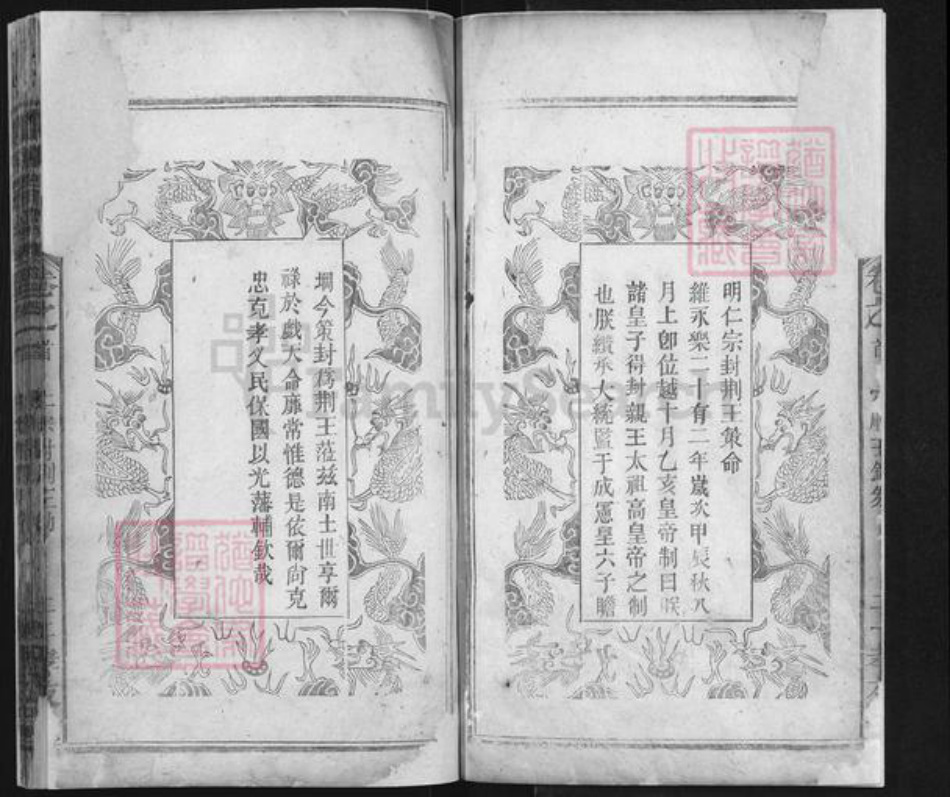 明仁宗封荆王策命
維永樂二十有二年歲次甲辰秋八
月上卽位越十月乙亥皇帝制曰朕
諸皇子得封親王太祖高皇帝之制
也朕纘承大統曁于成憲皇六子瞻
堈今策封爲荆王蒞兹南土世享爾
祿於戲天命靡常惟德是依爾尙克
忠克孝乂民保國以光藩輔欽哉
卷之首
FamilySearch